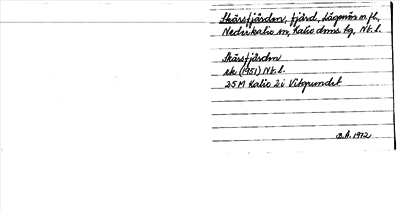 Skärsfjärden, fjärd, Lågmån m fl,
Nederkalix sn, Kalix dms. tg, Nt. l.
Skärsfjärden
ek (1951) Nt. l.
25 M Kalix 2i Vitgrundet
B.A. 1972